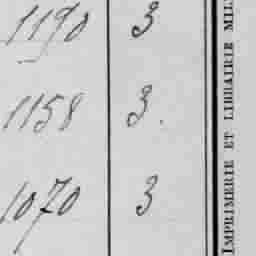 1190 3
1158 3.
1070 3
IMPRIMERIE ET LIBRAIRIE